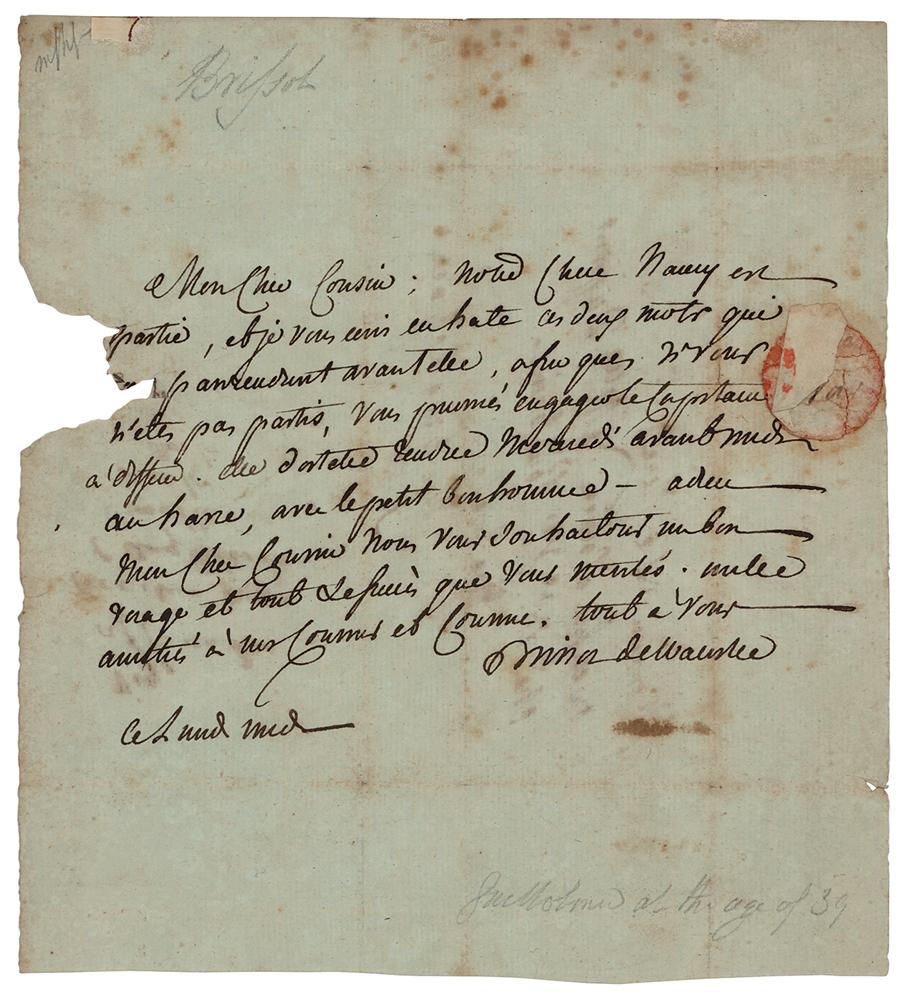 Brissot
Mon Cher Cousin ; notre Chere Nancy est
partie, et je vous ecris en hate ces deux mots qui
parviendront avant elle, afin que si vous
n'etes pas partis, vous puissiés engager le Capitaine
à differer. elle doit etre rendue Mercredi avant midi
au havre, avec le petit bonhomme - adieu
Mon Cher Cousin Nous vous souhaitons un bon
voyage et tout le succès que vous merités. mille
amitiés à nos Cousins et Cousine. tout à vous
Brissot de Warville
Ce Lundi midi
Guillotined at the age of 39